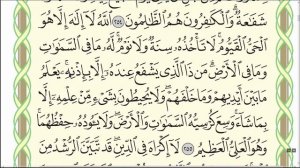 شَفَٰعَةٌ ۗ وَٱلْكَٰفِرُونَ هُمُ ٱلظَّٰلِمُونَ ٢٥٤ ٱللَّهُ لَآ إِلَٰهَ إِلَّا هُوَ
ٱلْحَىُّ ٱلْقَيُّومُ ۚ لَا تَأْخُذُهُۥ سِنَةٌ وَلَا نَوْمٌ ۚ لَّهُۥ مَا فِى ٱلسَّمَٰوَٰتِ
وَمَا فِى ٱلْأَرْضِ ۗ مَن ذَا ٱلَّذِى يَشْفَعُ عِندَهُۥٓ إِلَّا بِإِذْنِهِۦ ۚ يَعْلَمُ
مَا بَيْنَ أَيْدِيهِمْ وَمَا خَلْفَهُمْ ۖ وَلَا يُحِيطُونَ بِشَىْءٍ مِّنْ عِلْمِهِۦٓ إِلَّا
بِمَا شَآءَ ۚ وَسِعَ كُرْسِيُّهُ ٱلسَّمَٰوَٰتِ وَٱلْأَرْضَ ۖ وَلَا يَـُٔودُهُۥ حِفْظُهُمَا ۚ
وَهُوَ ٱلْعَلِىُّ ٱلْعَظِيمُ ٢٥٥ لَآ إِكْرَاهَ فِى ٱلدِّينِ ۖ قَد تَّبَيَّنَ ٱلرُّشْدُ مِنَ